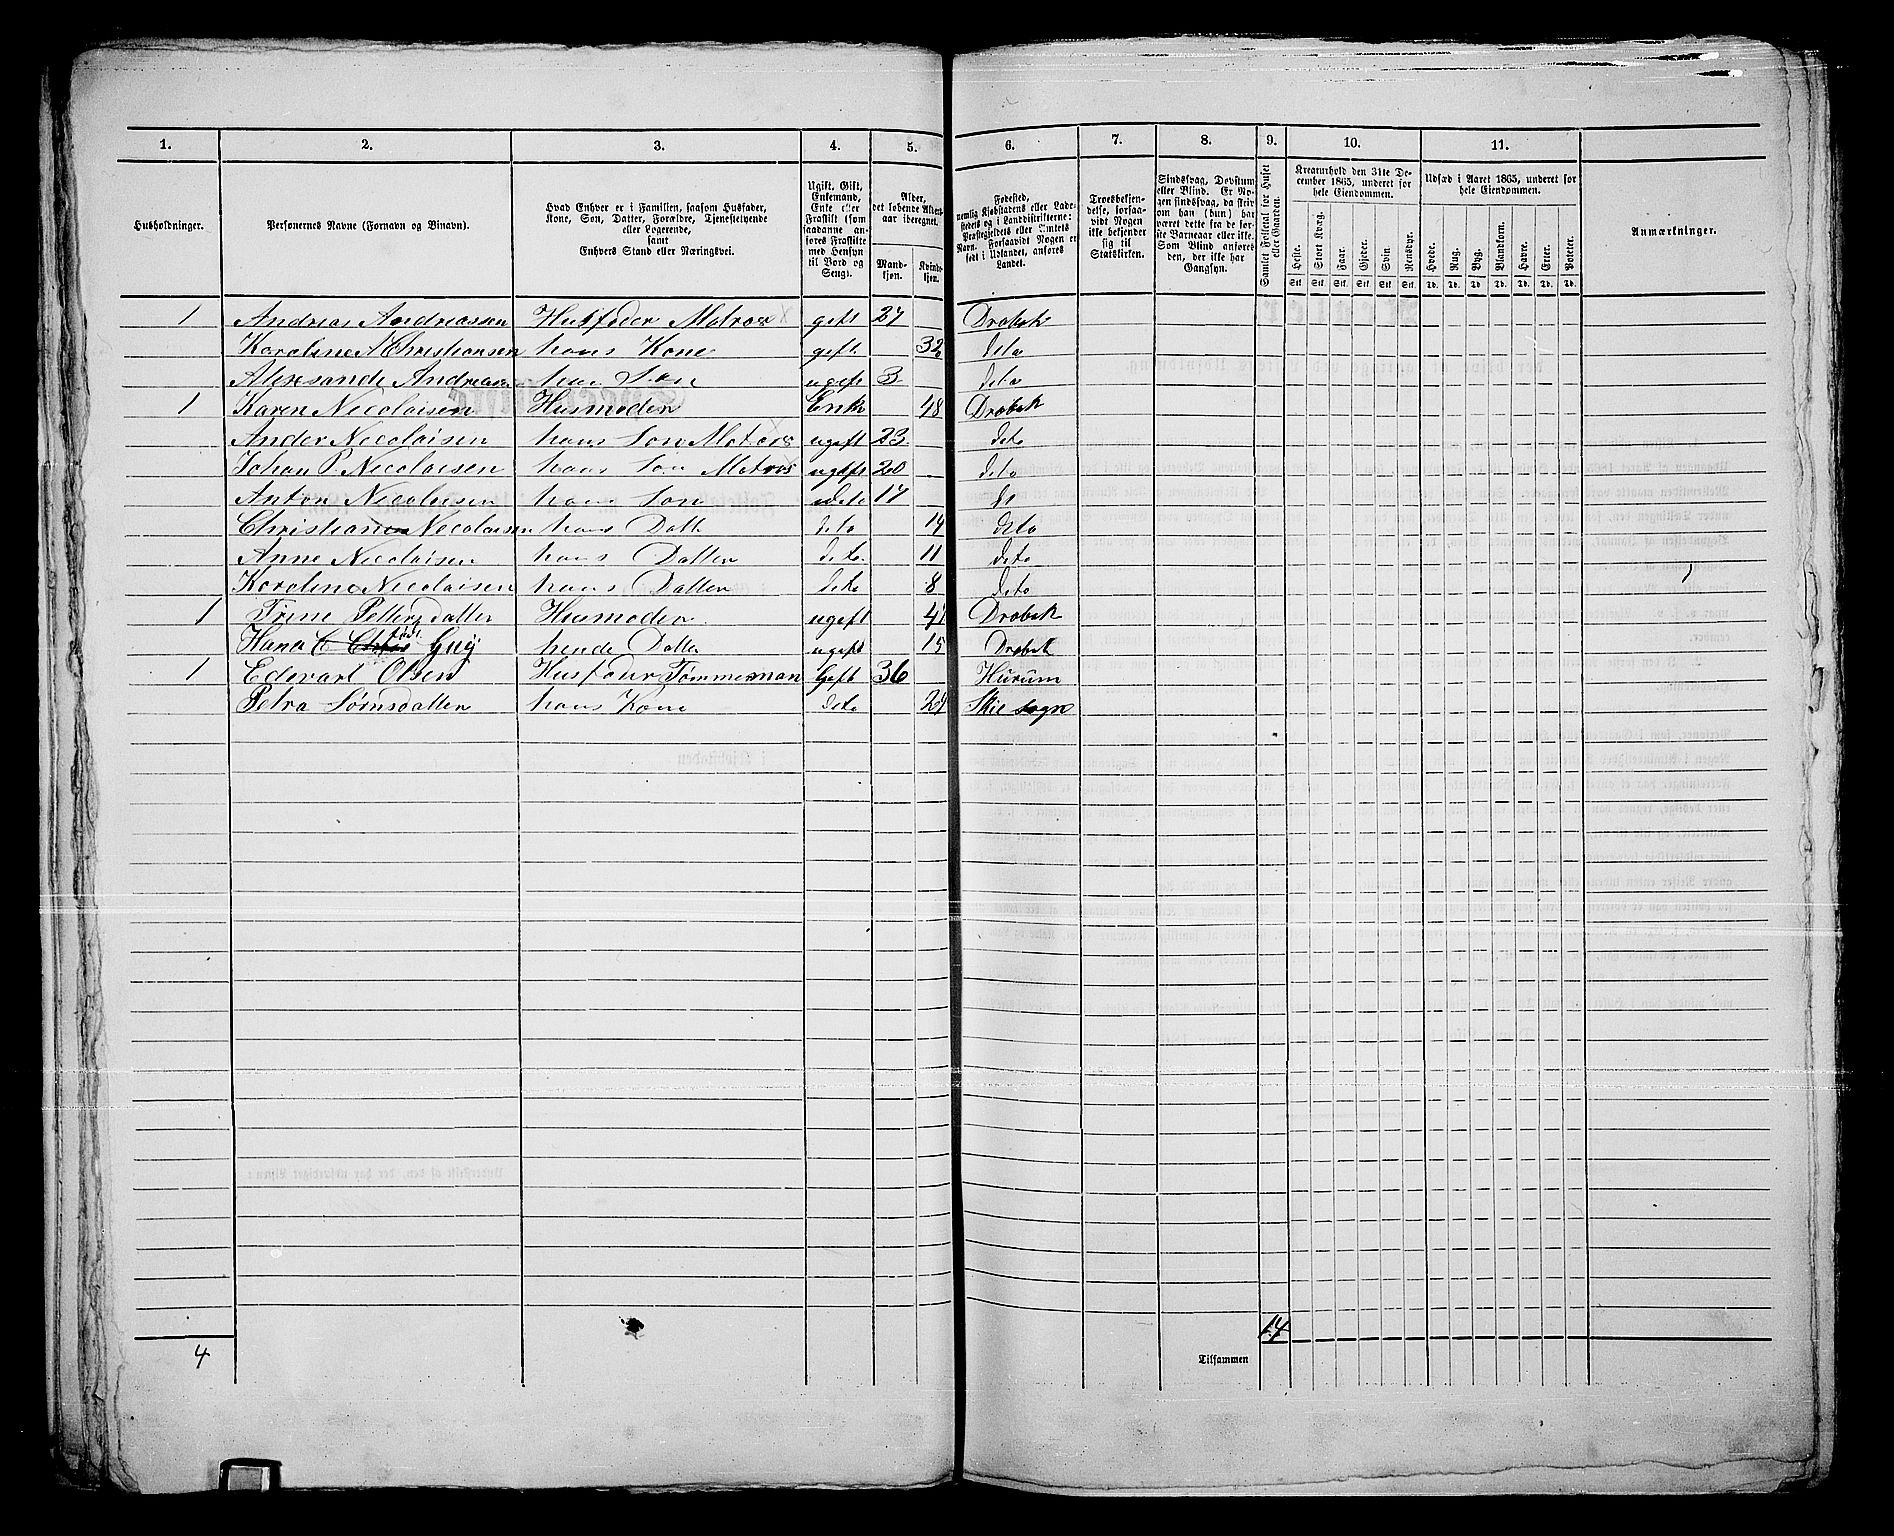 1. 2. 3. 4. 5. 6. 7. 8. 9. 10. 11.
Husholdninger.
Personernes Navne (Fornavn og Binavn).
Hvad Enhver er i Familien, saasom Husfader,
Kone, Søn, Datter, Forældre, Tjenestetyende
eller Logerende,
samt
Enhvers Stand eller Næringsvei.
Ugift, Gift,
Enkemand,
Enke eller
Fraskilt (som
saadanne an-
føres Fraskilte
med Hensyn
til Bord og
Seng).
Alder,
det løbende Alders-
aar iberegnet.
Mand-
kjøn.
Kvinde-
kjøn.
Fødested,
nemlig Kjøbstadens eller Lade-
stedets og i Landdistrikterne:
Præstegjeldets eller Amtets
Navn. Forsaavidt Nogen er
født i Udlandet, anføres
Landet.
Troesbekjen-
delse, forsaa-
vidt Nogen
ikke bekjender
sig til
Statskirken.
Sindssvag, Døvstum
eller Blind. Er No-
gen sindssvag, da skriv
om han (hun) har
været dette fra de før-
ste Barneaar eller ikke.
Som Blind anføres
den, der ikke har
Gangsyn.
Samlet Folketal for Huset
eller Gaarden.
Kreaturhold den 31te De-
cember 1865, underet for
hele Eiendommen.
Heste. Stort Kvæg. Faar. Gjeder. Svin. Rensdyr.
Stk. Stk. Stk. Stk. Stk. Stk.
Udsæd i Aaret 1865, underet for
hele Eiendommen.
Hvede. Rug. Byg. Blandkorn. Havre. Erter. Poteter.
Td. Td. Td. Td. Td. Td. Td.
Anmærkninger.
1 Andreas Andreassen Husfader Matros gift 27 Drøbak
Karoline A Christiansen hans Kone gift 32 deto
Alexsande Andreasen hans Søn ugift 3 deto
1 Karen Nicolaisen Husmoder Enk 48 Drøbak
Ander Nicolaisen hans Søn Matros ugift 23 deto
Johan P. Nicolaisen hans Søn Matros ugift 20 deto
Anton Nicolaisen hans Søn deto 17 de
Christiane Nicolaisen hans Datte deto 14 deto
Anne Nicolaisen hans Datter deto 11 deto
Karoline Nicolaisen hans Datter deto 8 deto
1 Trine Petters datter Husmoder ugift 41 Drøbak
Hana C hende Datter ugift 15 Drøbak
1 Edevart Olsen Husfader Tømmerman Gift 36 Hurum
Petra Sørnsdatter hans Kone deto 29 Skie sogn
14
4
Tilsammen